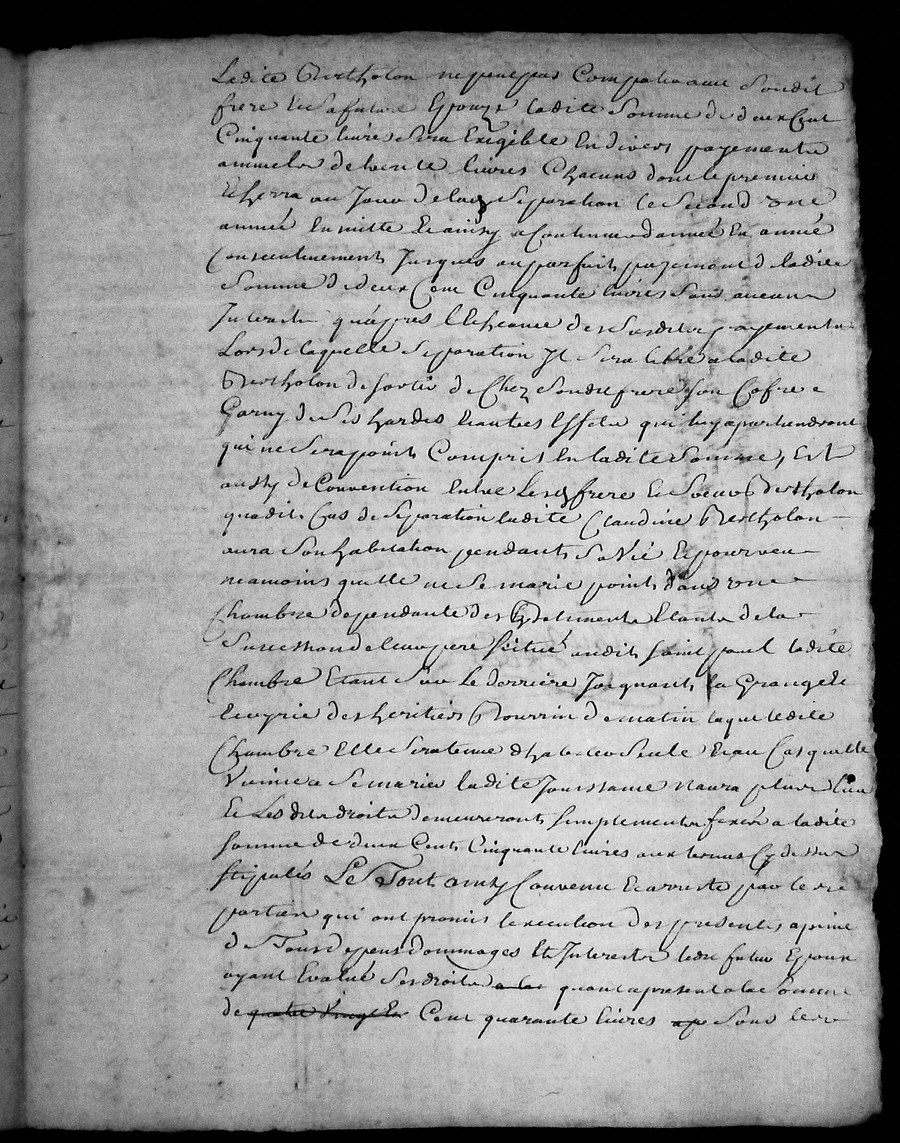 Ladite Bertholon ne peut pas Compatir avec Sondit
frere Et Sa future Epouze ladite Somme de deux Cent
Cinquante livres Sera Exigible En divers payements
annuels de trente livres Chacuns dont le premier
Echerra au Jour de lad. Separation le Second une
année Ensuitte Et ainsy a Continuer dannée En année
Consecutivement Jusques au parfait payement de ladite
Somme de deux Cent Cinquante livres Sans aucun
Interest quapres l'Echeance desdits payements
Lors de laquelle Separation Il Sera libre a ladite
Bertholon de Sortir de Chez Sondit frere Son Cofre
Garny de Ses hardes Et autres Effets qui luy apartiendront
qui ne Sera point Compris En ladite Somme, Est
aussy de Convention Entre Lesd. frere Et Soeur Bertholon
quaudit Cas de Separation ladite Claudine Bertholon
aura Son habitation pendant Sa Vie Et pourveu
neamoins quelle ne Se marie point dans une
Chambre dependante des Batiments Etant de la
Succession de leur pere Situé audit Saint paul ladite
Chambre Etant Sur Le derriere Joignant la Grange Et
Ecuyrie des heritiers Bourrin de matin laquelle dite
Chambre Elle Sera tenue dhabiter Seule Et au Cas quelle
Vienne a Se marier ladite Jouissance n'aura plus Lieu
Et Lesdits droits demeureront Simplement fixés a ladite
Somme de deux Cent Cinquante livres aux termes Cy dessus
Stipulés Le Tout ainsy Convenu Et arresté par les
parties qui ont promis l'execution des presentes a peine
de Tous depens dommages Et Interests ledit futur Epoux
ayant Evalué Ses droits a la quant a present a la Somme
de quatre Vingt Cent quarante livres Sous les